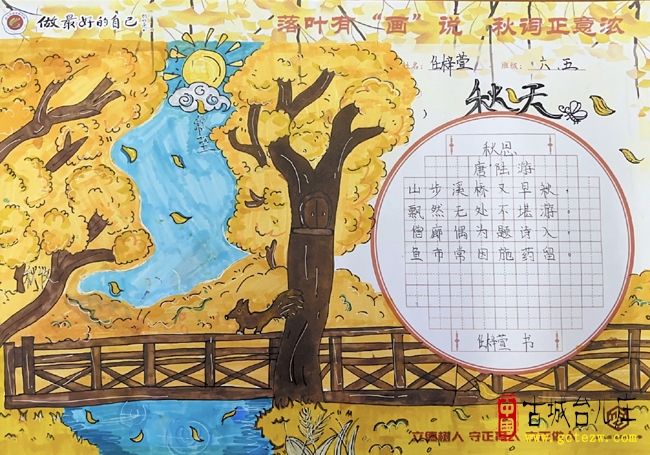 做最好的自己
落叶有“画”说 秋词正意浓
姓名:任梓萱 班级:六.五
秋天
秋思
唐 陆游
山步溪桥又早秋,
飘然无处不堪游。
僧廊偶为题诗入,
鱼市常因施药留。
任梓萱 书
立德树人 守正
中國 古城台儿庄
www.gctezw.com